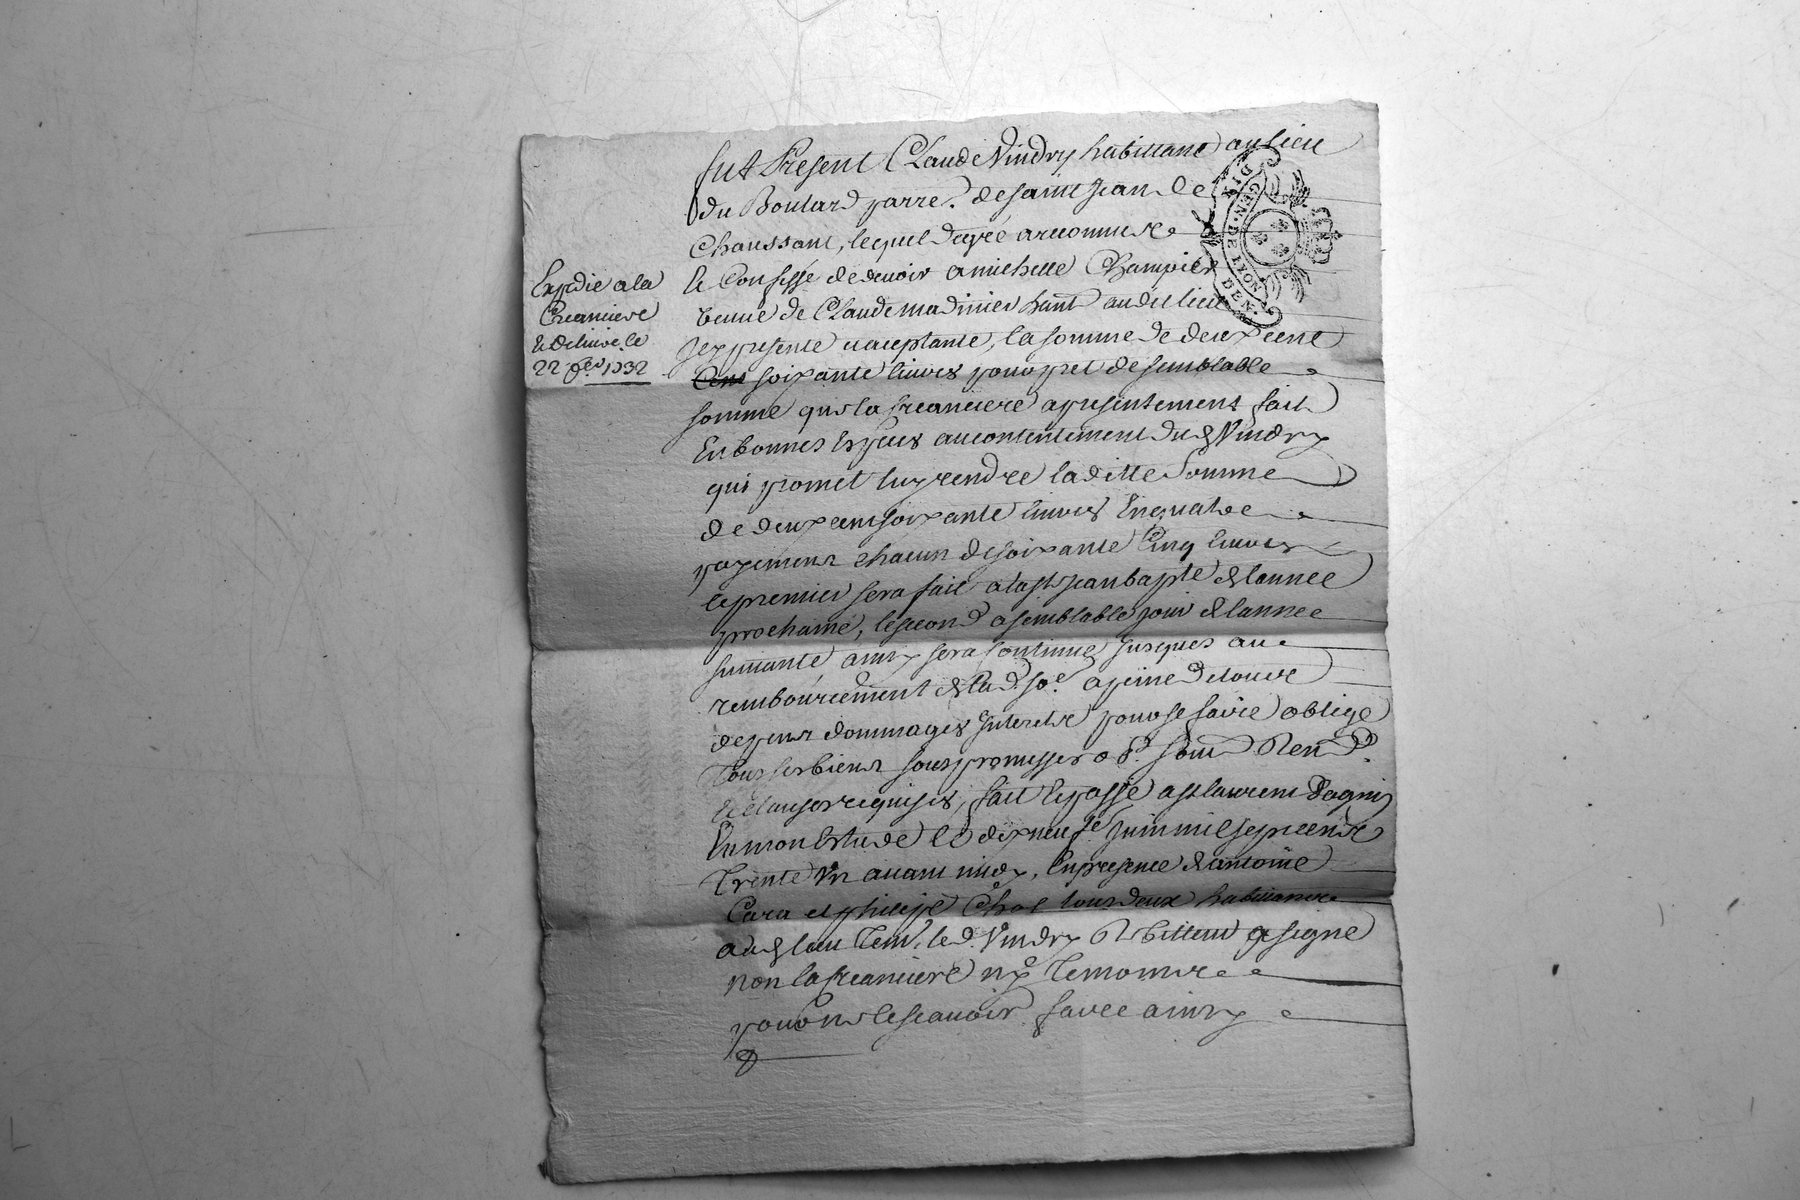 fut Present Claude Vindry habittant au lieu
du Boulard parre. de saint Jean de
Chaussant, lequel de gré a reconnu et
et Confessé de devoir a michelle Champier
veuve de Claude madinier hant audit lieu
Jcy presente et aceptante, la somme de deux cent
soixante livres pour pret de semblable
somme que la Creanciere a presentement fait
En bonnes Especes au contentement dud Vindry
qui promet luy rendre la ditte Somme
de deux cent soixante livres En quatre
payemens chacun de soixante Cinq livres
le premier sera fait a la st jean bapte de lannee
prochaine, le second a semblable jour de lannee
suivante ainsy sera Continué jusques au
remboursement de lad. so.e a peine de tous
depens dommages Interets pour se faire oblige
Tous ses biens sous promesses
et clauses requises, fait et passé a st laurent Dagny
En mon Estude le dix neuf.e juin mil sept cent
Trente Vn avant midy, En presence de antoine
Cara et philippe Chol tous deux habittants
aud lieu Tem. led. Vindry Debitteur a signé
non la Creanciere ny Temoins
pour ne le scavoir faire ainsy
Expedié a la
Creanciere
et delivré le
22 1732
GEN. DE LYON